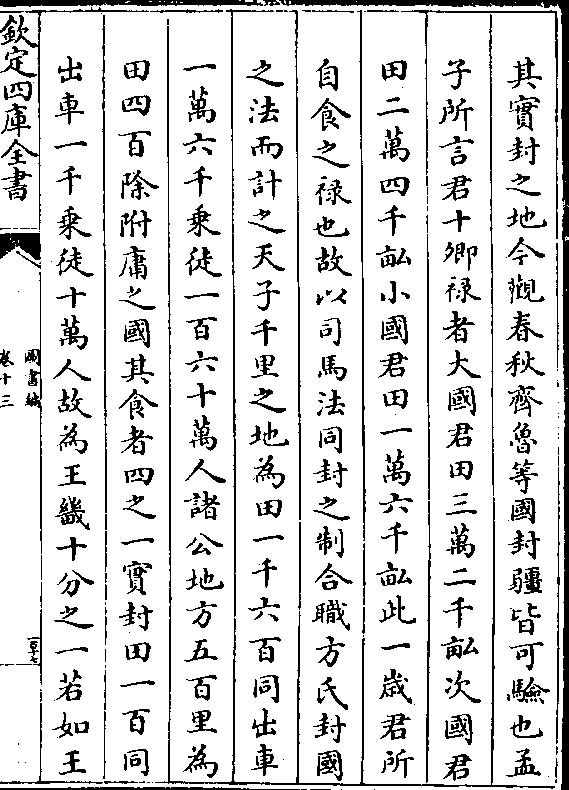 其實封之地今觀春秋齊魯等國封疆皆可驗也孟
子所言君十卿禄者大國君田三萬二千畝次國君
田二萬四千畝小國君田一萬六千畝此一歲君所
自食之禄也故以司馬法同封之制合職方氏封國
之法而計之天子千里之地為田一千六百同出車
一萬六千乗徒一百六十萬人諸公地方五百里為
田四百除附庸之國其食者四之一實封田一百同
出車一千乗徒十萬人故為王畿十分之一若如王
欽定四庫全書
圖書編
卷十三